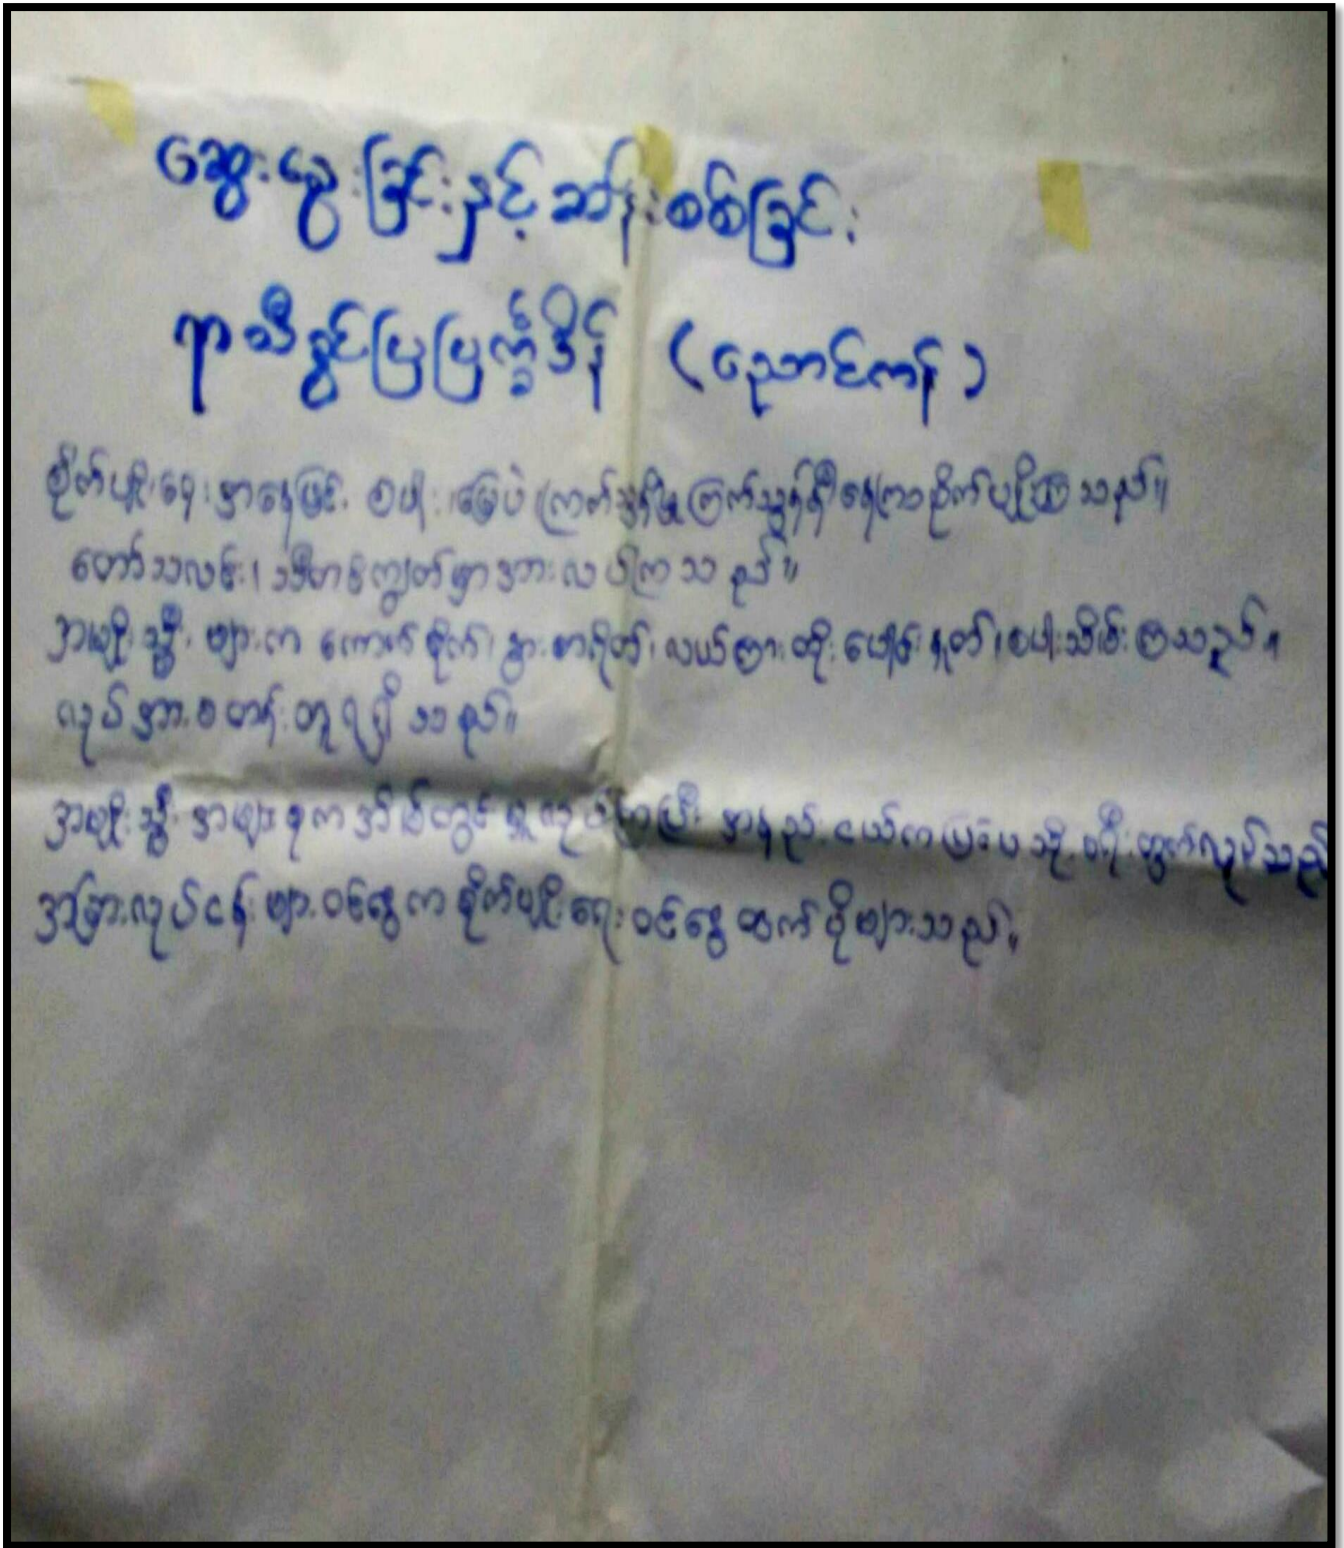 ဆွေးနွေးခြင်းနှင့်ဆန်းစစ်ခြင်း
ရာသီခွင်ပြပြက္ခဒိန် (ညောင်ကန်)
စိုက်ပျိုးရေးအနေဖြင့် စပါး၊မြေပဲ၊ကြက်သွန်ဖြူ၊ကြက်သွန်နီ၊နေကြာစိုက်ပျိုးကြသည်။
တော်သလင်း၊သီတင်းကျွတ်မှာအားလပ်ကြသည်။
အမျိုးသ္မီးများက ကောက်စိုက်၊နွားစာရိတ်၊လယ်ကြား၊တိုး၊ပေါင်းနုတ်၊စပါးသိမ်းကြသည်။
လုပ်အားခတန်းတူရရှိသည်။
အမျိုးသ္မီးအများစုကအိမ်တွင်မှုလုပ်ကြပြီး အနည်းငယ်ကပြင်ပသို့ခရီးထွက်လုပ်သည်
အခြားလုပ်ငန်းများဝင်ငွေကစိုက်ပျိုးရေးဝင်ငွေထက်ပိုများသည်။